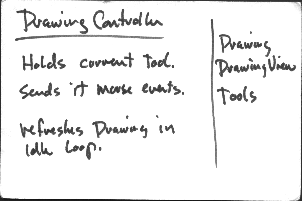 Drawing Controller
Holds current tool.
Sends it mouse events.
refreshes Drawing in
Idle loop.
Drawing
DrawingView
Tools